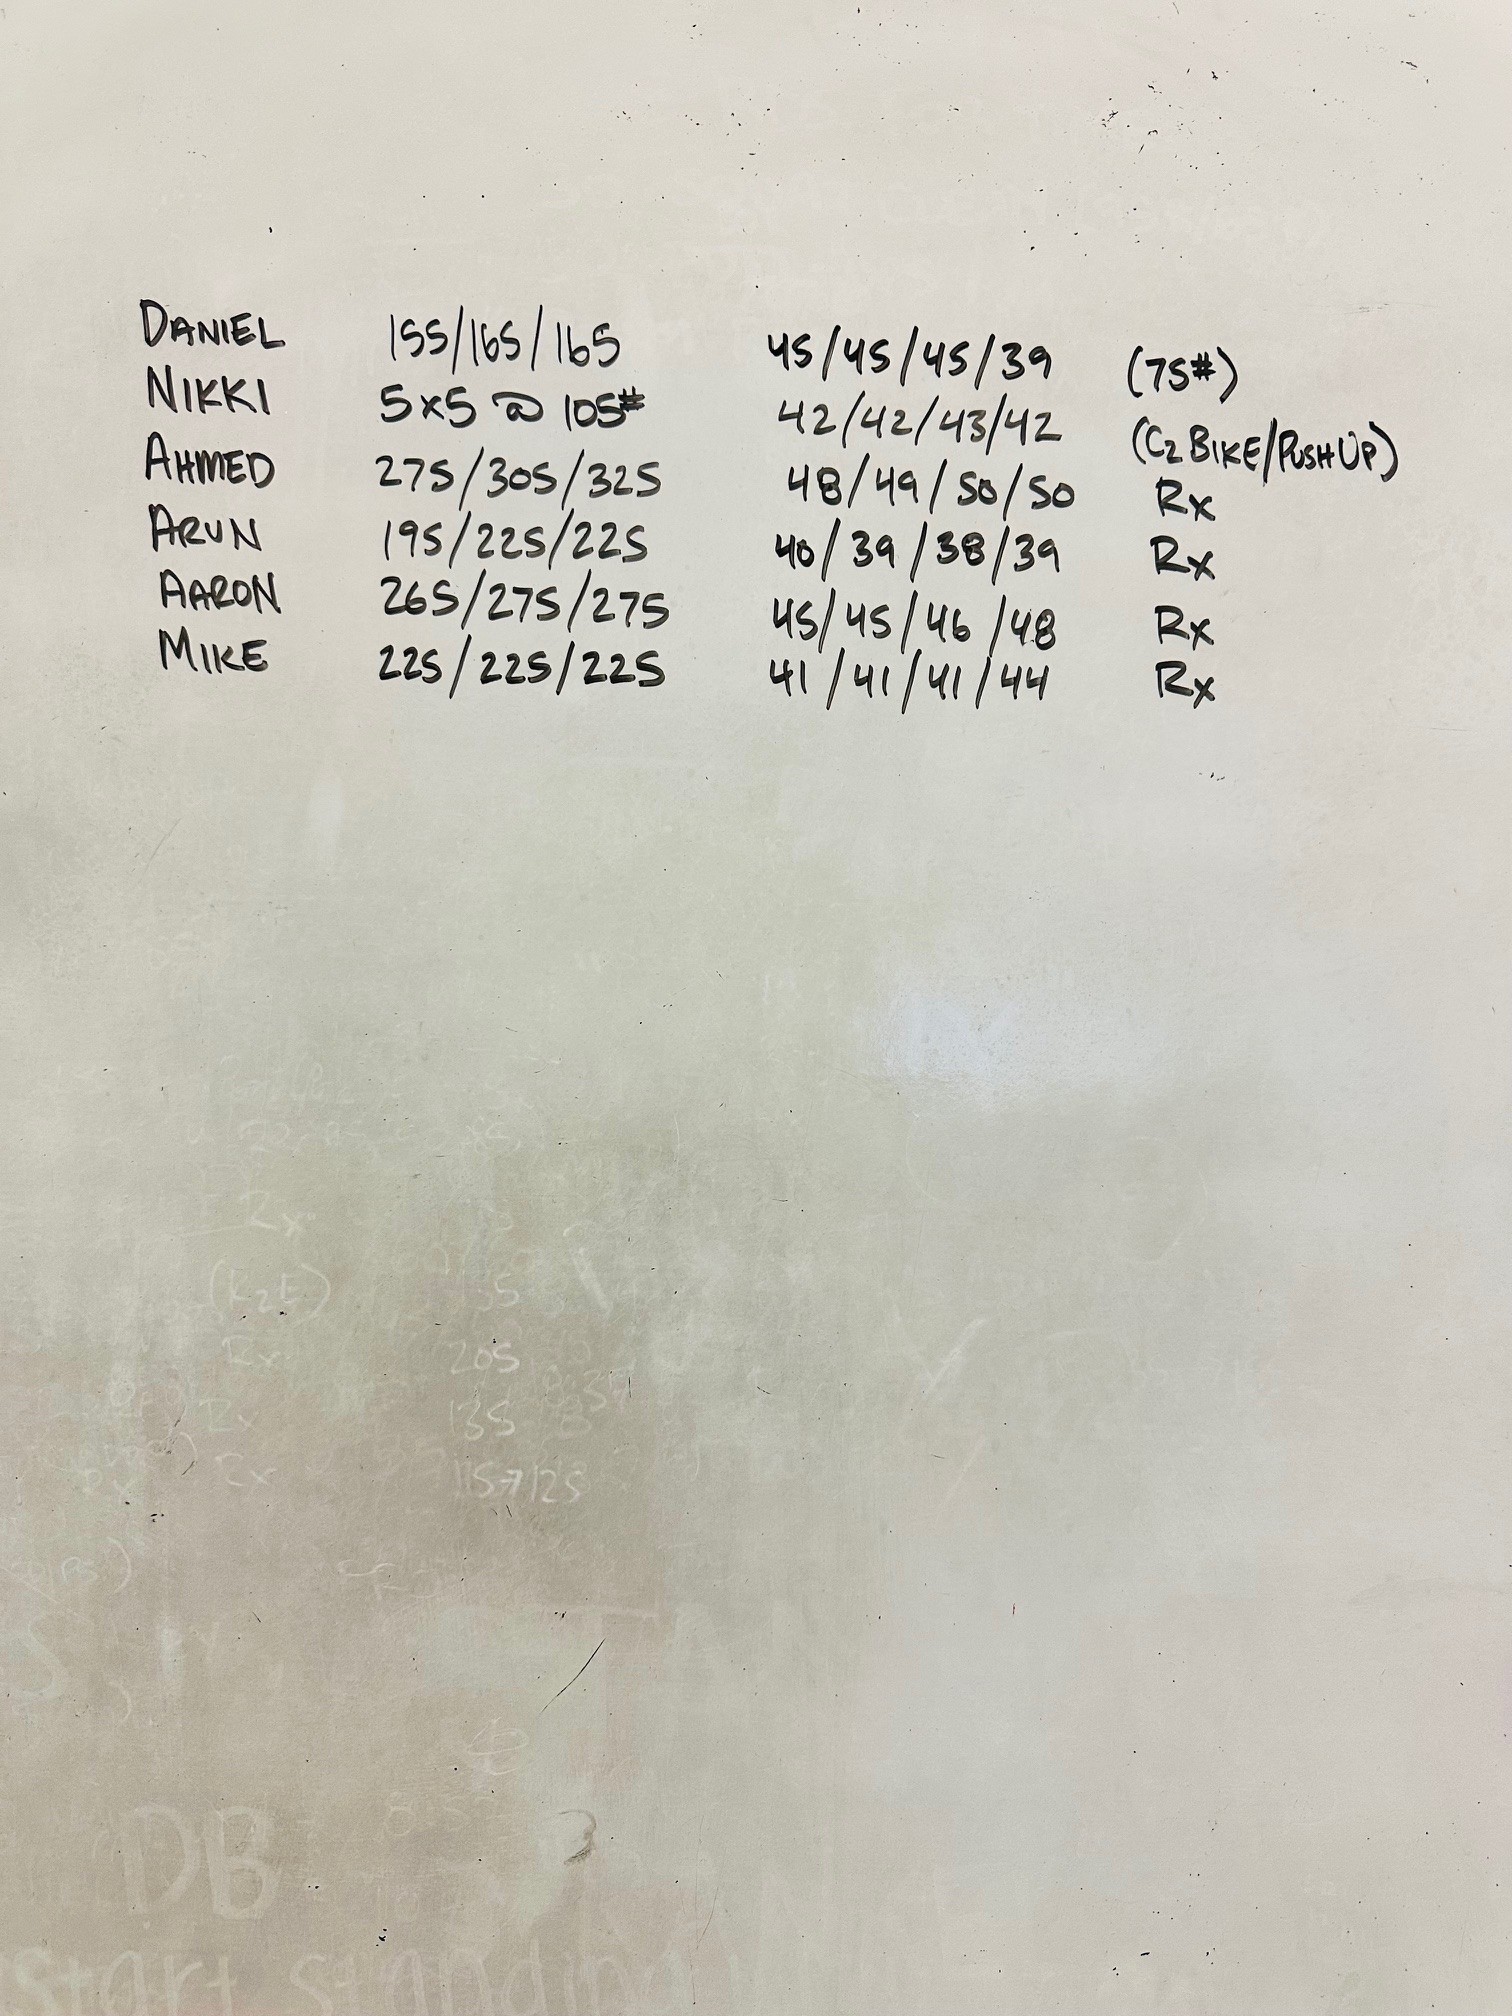 DANIEL 155/165/165 45/45/45/39 (75#)
NIKKI 5x5 @ 105# 42/42/43/42 (C2 BIKE/PUSH UP)
AHMED 275/305/325 48/49/50/50 Rx
ARUN 195/225/225 40/39/38/39 Rx
AARON 265/275/275 45/45/46/48 Rx
MIKE 225/225/225 41/41/41/44 Rx
Rx
(K2E)
Rx 205
Rx 135
Rx Rx 115-7125
DB
start standing